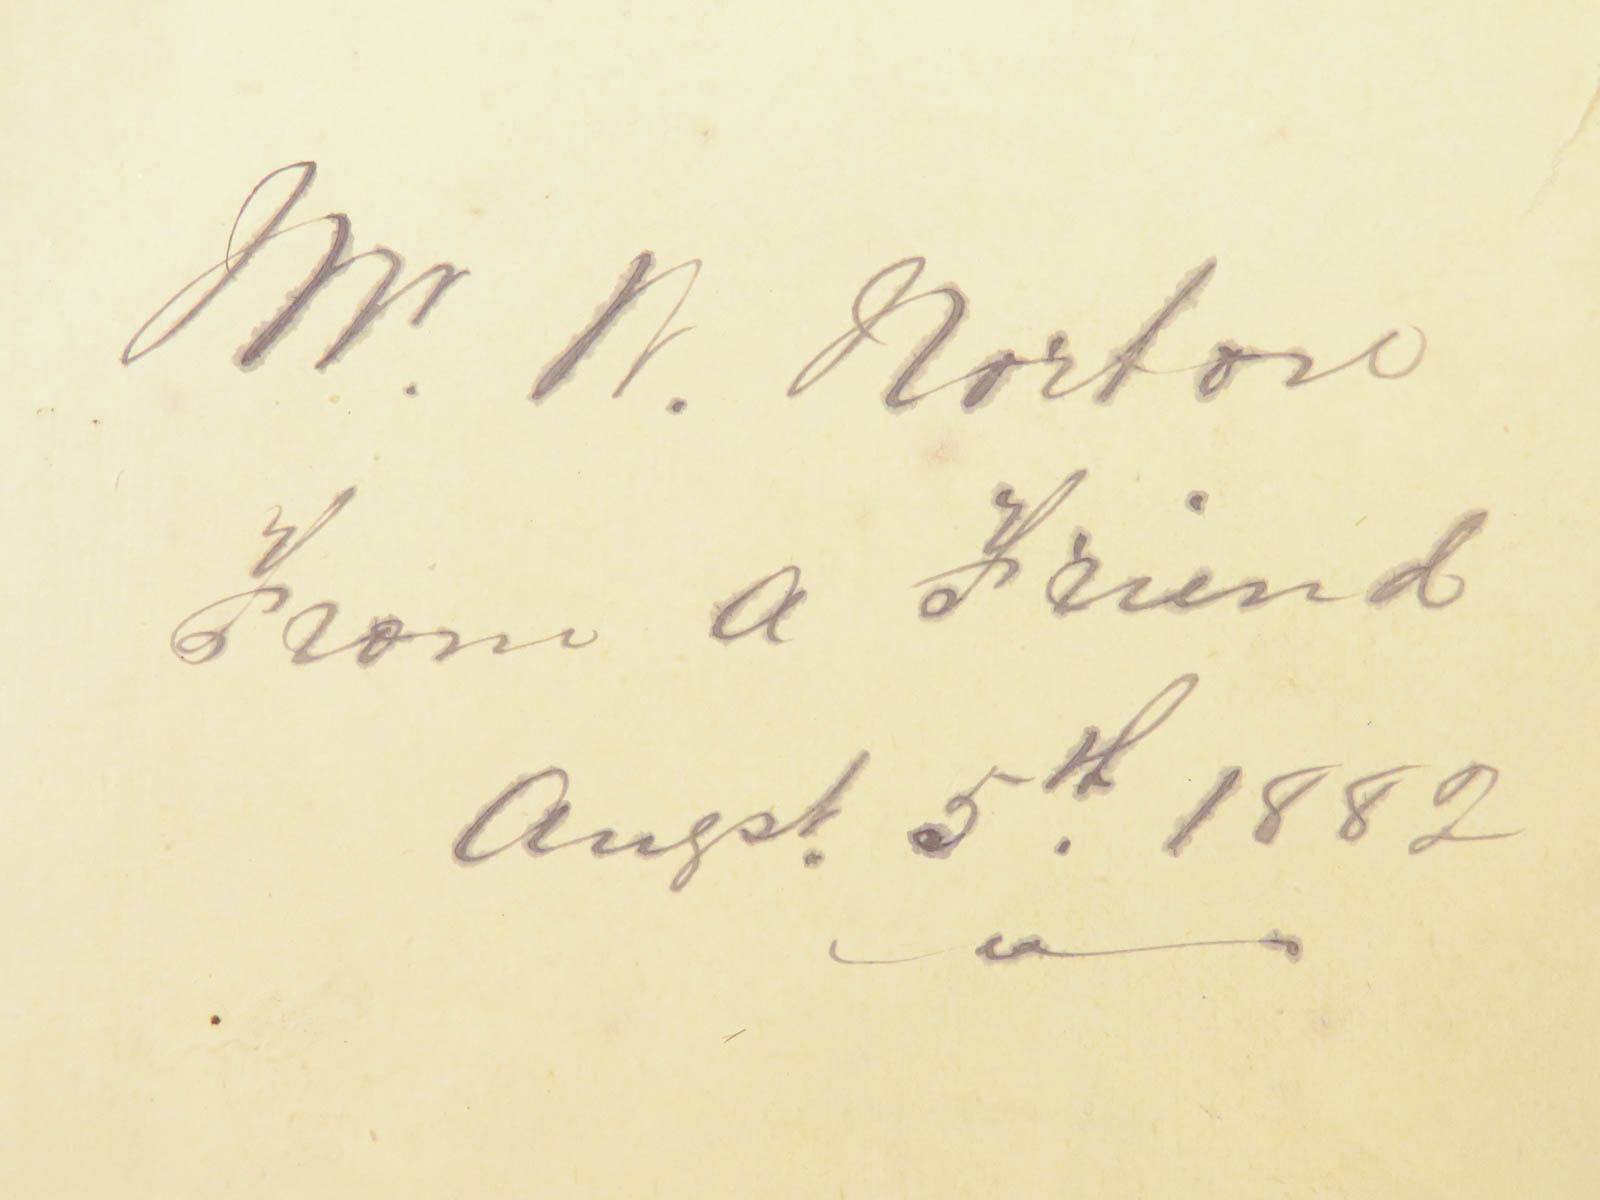 Mr. N. Norton
From a Friend
Augst. 5th. 1882